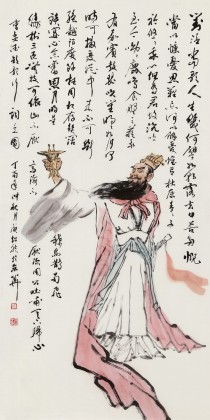 對酒當歌人生幾何譬如朝露去日苦多慨
當以慷憂思難忘何以解憂唯有杜康青青子
衿悠悠我心但為君故沉
吟至今呦呦鹿鳴食野之苹我
有嘉賓鼓瑟吹笙明明如月何
時可掇憂從中來不可斷
絕越陌度阡枉用相存契闊
談讌心念舊恩月明星
稀烏鵲南飛
繞樹三匝何枝可依山不厭
高海不
厭深周公吐哺天下歸心
曹孟德短歌行詞意圖